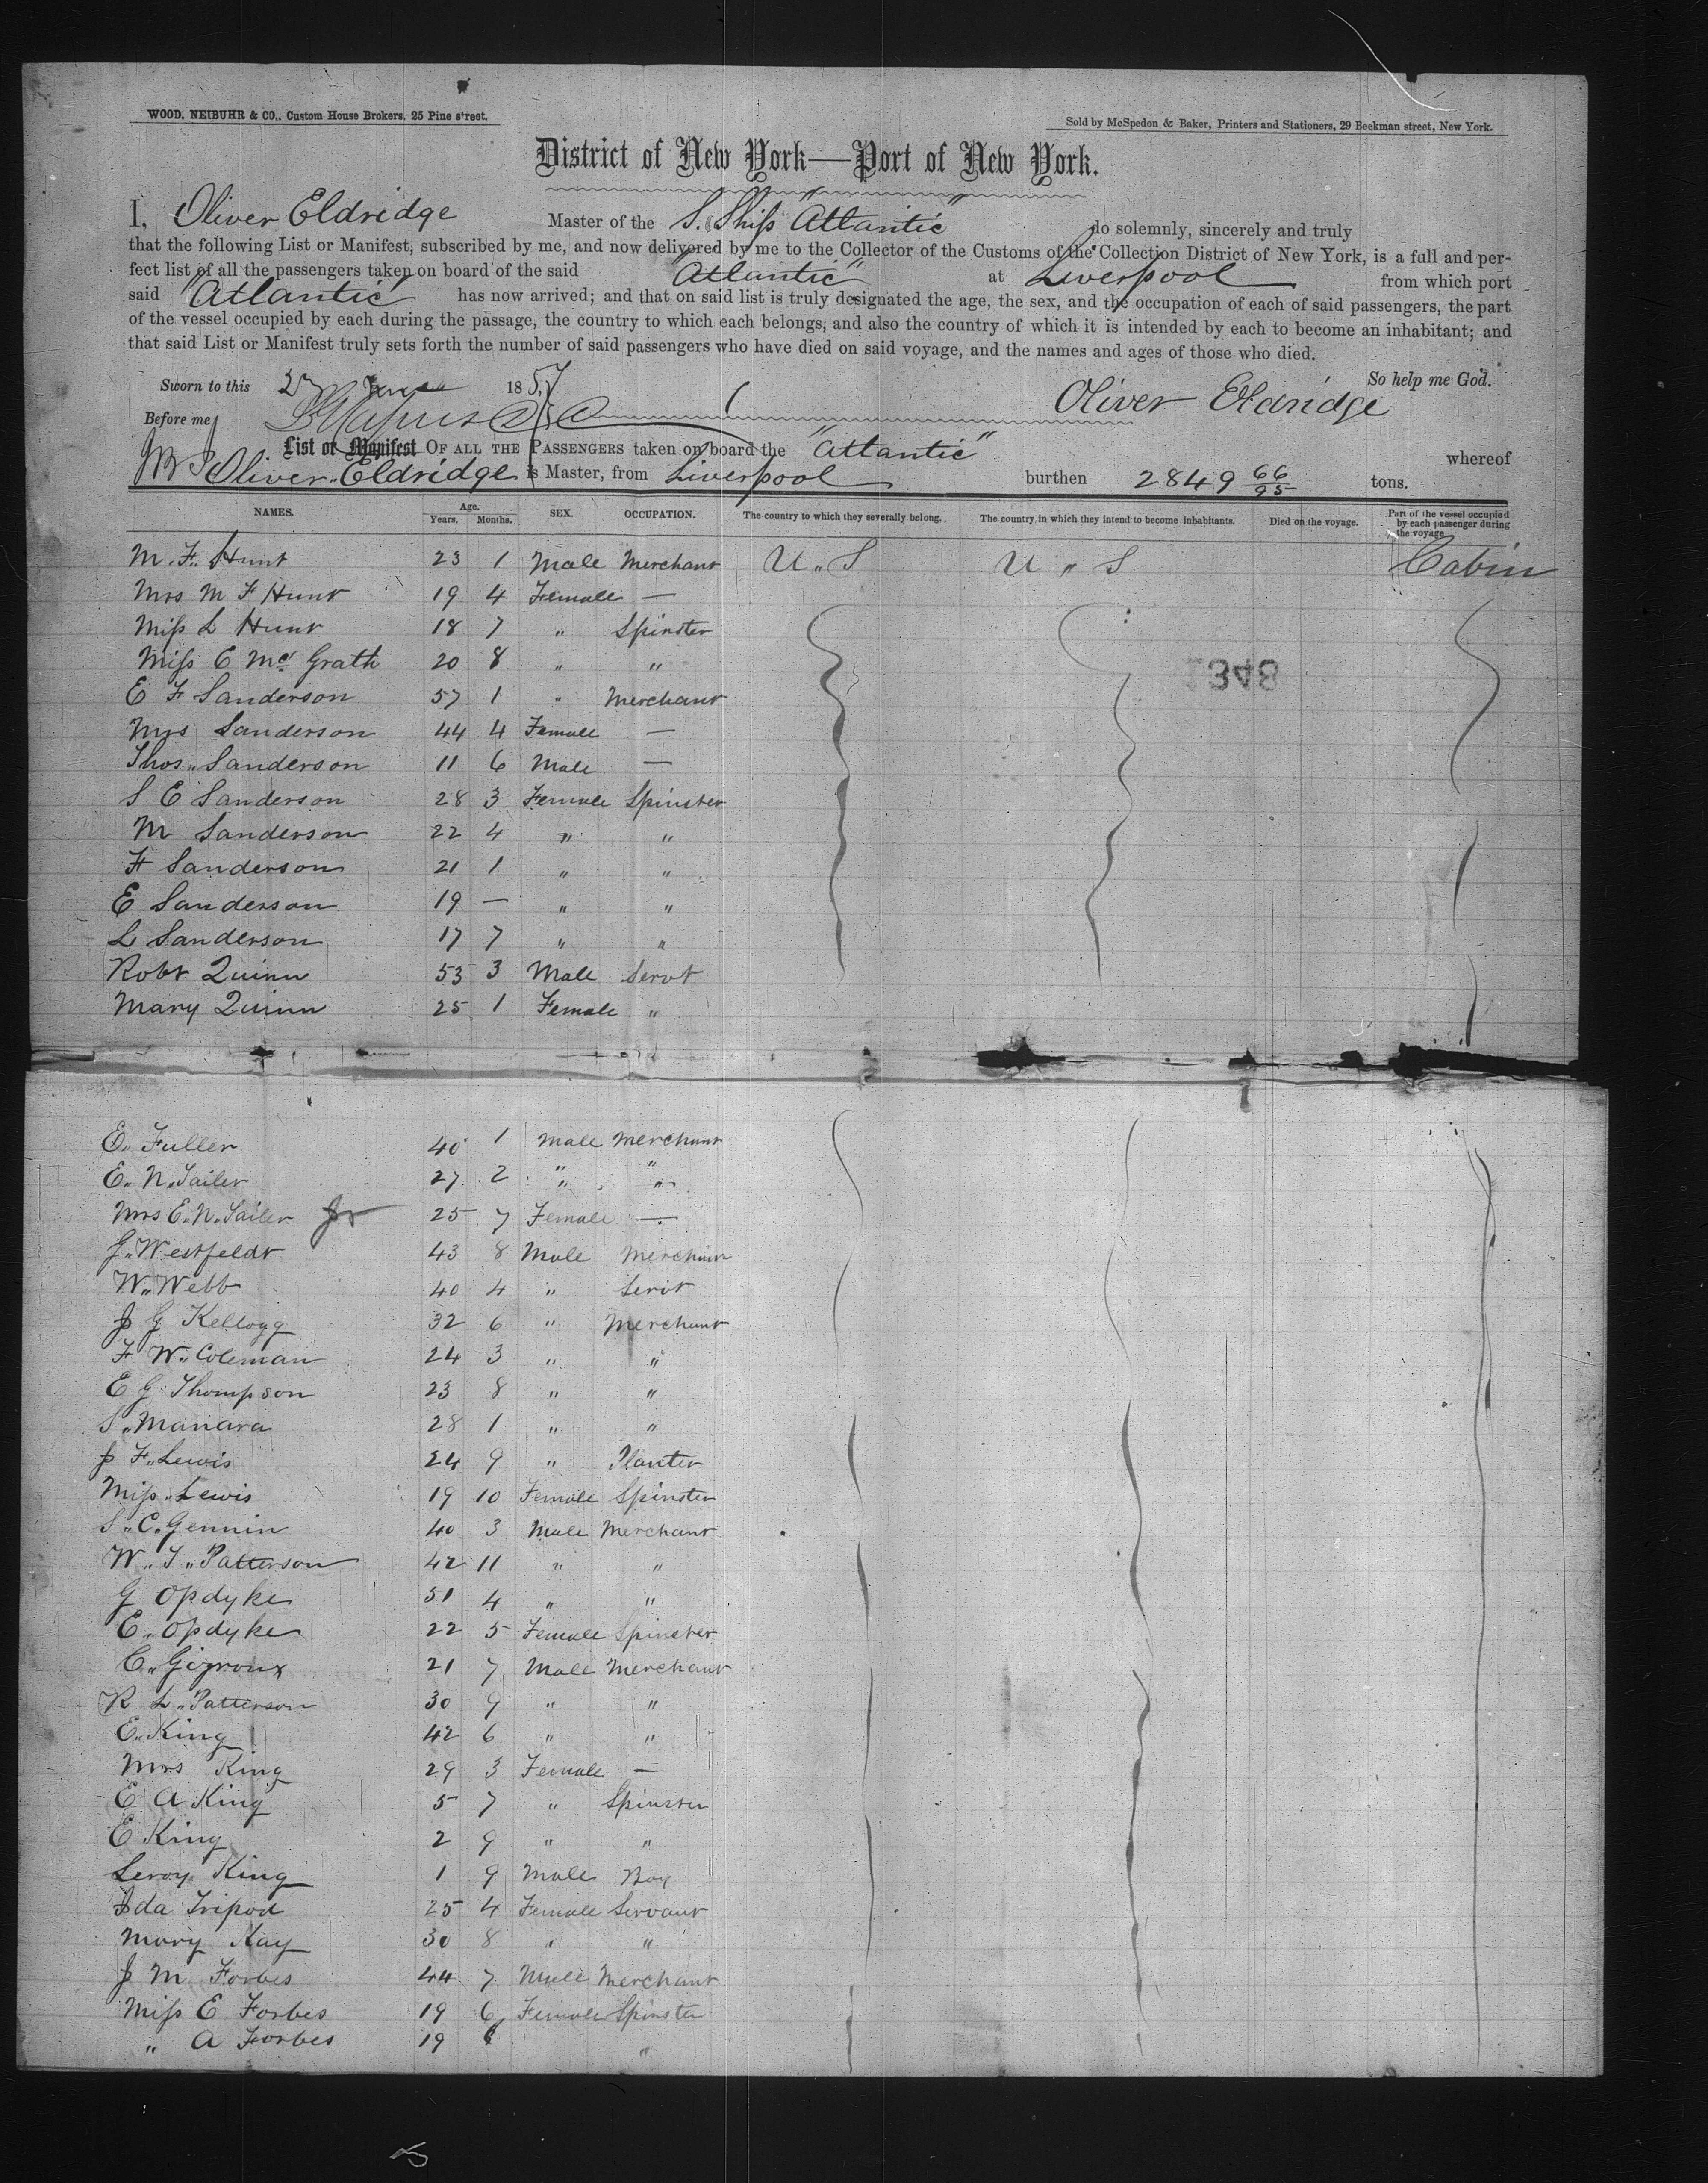 WOOD, NEIBUHR & CO., Custom House Brokers, 25 Pine street.
Sold by McSpedon & Baker, Printers and Stationers, 29 Beekman street, New York.
District of New York—Port of New York.
I, Oliver Eldridge Master of the S. Ship "Atlantic" do solemnly, sincerely and truly
that the following List or Manifest, subscribed by me, and now delivered by me to the Collector of the Customs of the Collection District of New York, is a full and per-
fect list of all the passengers taken on board of the said "Atlantic" at Liverpool from which port
said "Atlantic" has now arrived; and that on said list is truly designated the age, the sex, and the occupation of each of said passengers, the part
of the vessel occupied by each during the passage, the country to which each belongs, and also the country of which it is intended by each to become an inhabitant; and
that said List or Manifest truly sets forth the number of said passengers who have died on said voyage, and the names and ages of those who died.
Sworn to this 27 June 1857 So help me God.
Before me Oliver Eldridge
List or Manifest OF ALL THE PASSENGERS taken on board the "Atlantic" whereof
Oliver Eldridge is Master, from Liverpool burthen 2849 66/95 tons.
NAMES. Age. Years. Months. SEX. OCCUPATION. The country to which they severally belong. The country in which they intend to become inhabitants. Died on the voyage. Part of the vessel occupied by each passenger during the voyage
M. F. Hunt 23 1 Male Merchant U.S U.S Cabin
Mrs M F Hunt 19 4 Female —
Miss L Hunt 18 7 " Spinster
Miss E Mc Grath 20 8 " "
1348
E F Sanderson 57 1 " Merchant
Mrs Sanderson 44 4 Female —
Thos. Sanderson 11 6 Male —
S E Sanderson 28 3 Female Spinster
M Sanderson 22 4 " "
F Sanderson 21 1 " "
E Sanderson 19 — " "
L Sanderson 17 7 " "
Robt Quinn 53 3 Male Servt
Mary Quinn 25 1 Female "
E. Fuller 40 1 Male Merchant
E. N. Tailer 27 2 " "
Mrs E. N. Tailer Jr 25 7 Female —
G. Westfeldt 43 8 Male Merchant
W. Webb 40 4 " Servt
J G Kellogg 32 6 " Merchant
F W. Coleman 24 3 " "
E G Thompson 23 8 " "
S. Manara 28 1 " "
J F. Lewis 24 9 " Planter
Miss Lewis 19 10 Female Spinster
S. C. Gennin 40 3 Male Merchant
W. T. Patterson 42 11 " "
G Opdyke 51 4 " "
E. Opdyke 22 5 Female Spinster
C. Gigroux 21 7 Male Merchant
R L. Patterson 30 9 " "
E. King 42 6 " "
Mrs King 29 3 Female —
E A King 5 7 " Spinster
E King 2 9 " "
Leroy King 1 9 Male Boy
Ida Tripod 25 4 Female Servant
Mary Kay 30 8 " "
J M Forbes 44 7 Male Merchant
Miss E Forbes 19 6 Female Spinster
" A Forbes 19 6 "